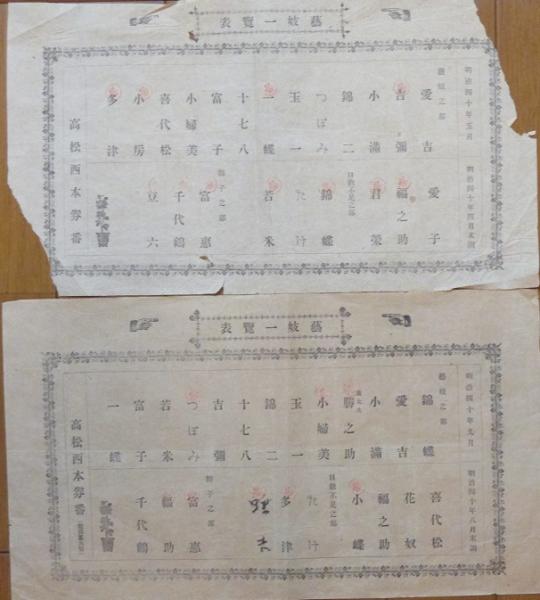 表覽一妓藝
明治四十年五月
明治四十年四月末調
藝妓之部
愛吉
吉彌
小滿
錦二
つぼみ
玉一
一蝶
十七八
富子
小婦美
喜代松
小房
多津
愛子
福之助
君榮
日数不足之部
錦蝶
若米
富惠
千代鶴
豆六
高松西本券番
表覽一妓藝
明治四十年九月
明治四十年八月末調
藝妓之部
錦蝶
愛吉
小滿
勝之助
小婦美
玉一
錦二
十七八
吉彌
つぼみ
若米
富子
一蝶
喜代松
花奴
福之助
小蝶
日数不足之部
多津
富惠
福助
千代鶴
高松西本券番